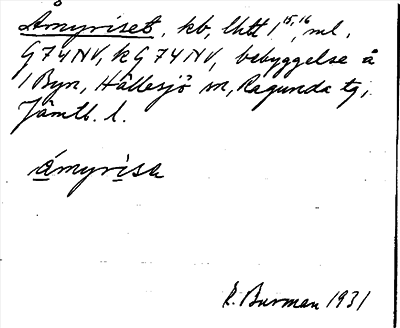 Åmyriset, kb, lhtt 1 15,16, ml.
G74NV, k G74NV, bebyggelse å
1 Byn, Hällesjö sn, Ragunda tg,
Jämtl. l.
åmyrisa
E. Burman 1931